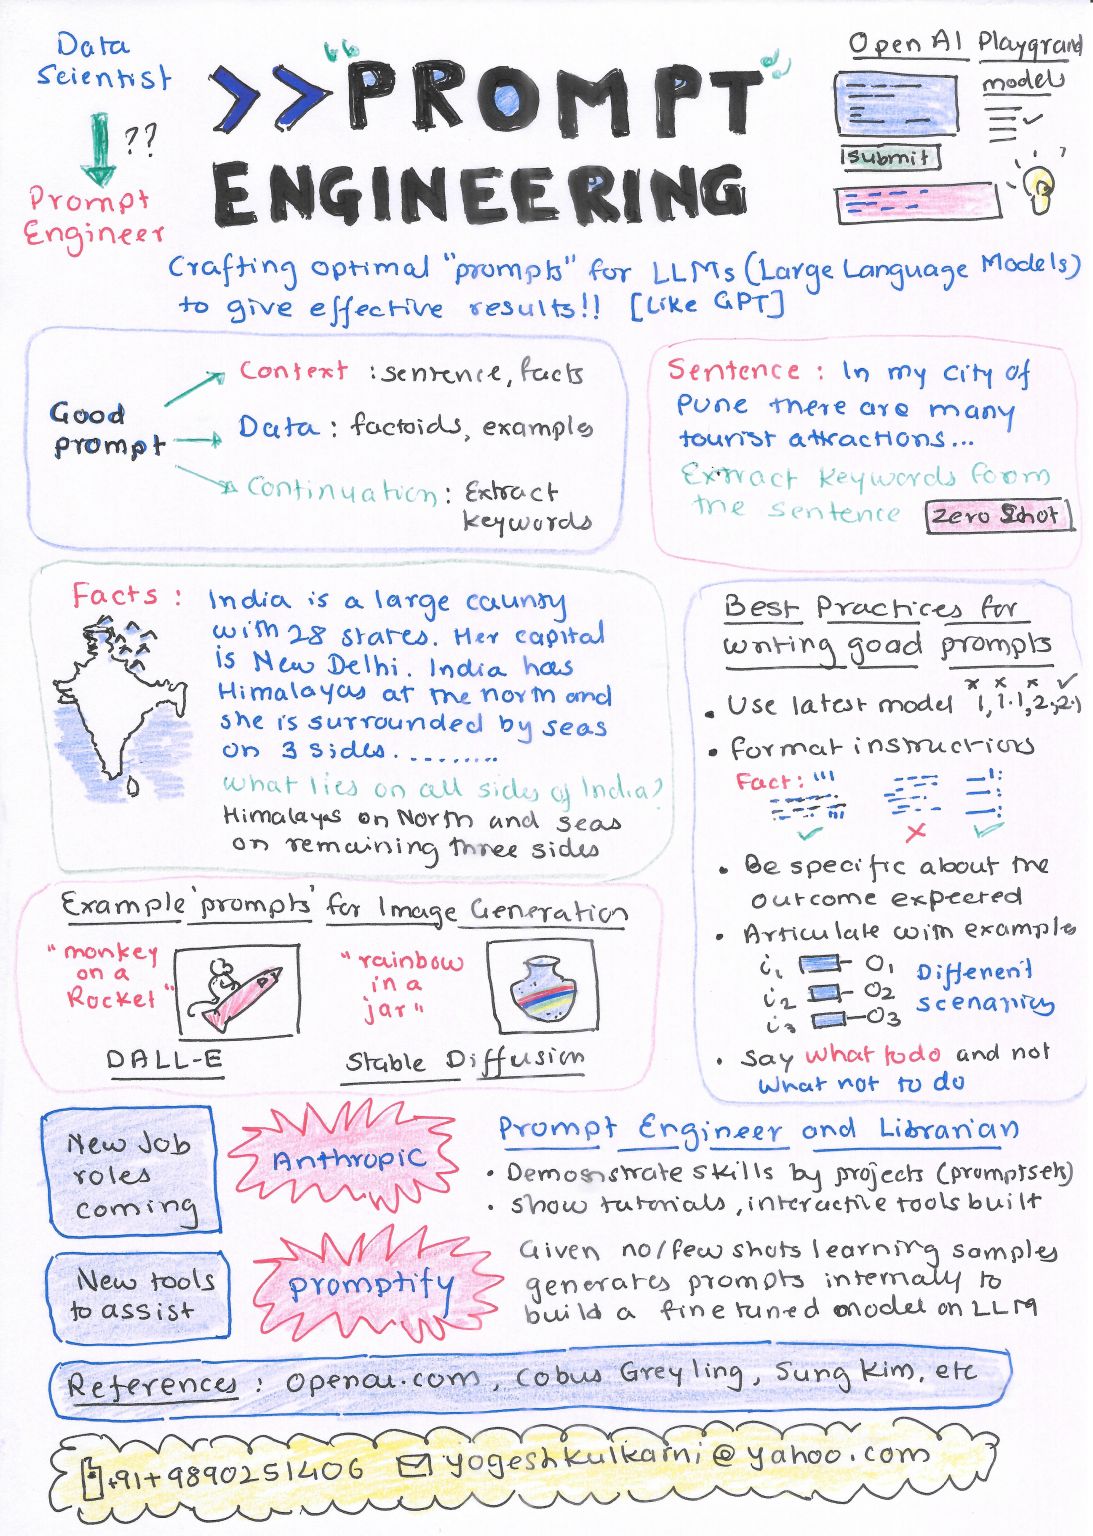 Data
Scientist
??
Prompt
Engineer
>> "PROMPT"
ENGINEERING
Open AI Playgrand
models
submit
Crafting optimal "prompts" for LLMs (Large Language Models)
to give effective results!! [Like GPT]
Good
prompt
Context : sentence, facts
Data : factoids, examples
Continuation : Extract
keywords
Sentence : In my city of
Pune there are many
tourist attractions...
Extract keywords form
the sentence
Zero Shot
Facts :
India is a large country
with 28 states. Her capital
is New Delhi. India has
Himalayas at the north and
she is surrounded by seas
on 3 sides.........
What lies on all sides of India?
Himalayas on North and seas
on remaining three sides
Best Practices for
writing good prompts
• Use latest model 1, 1.1, 2, 2.1
• Format instructions
Fact: '''
'''
• Be specific about the
outcome expected
• Articulate with example
i1 O1
i2 O2
i3 O3
Different
scenarios
• Say what to do and not
what not to do
Example 'prompts' for Image Generation
"monkey
on a
Rocket"
DALL-E
"rainbow
in a
jar"
Stable Diffusion
New Job
roles
coming
Anthropic
Prompt Engineer and Librarian
• Demonstrate skills by projects (promptsets)
• show tutorials, interactive tools built
New tools
to assist
promptify
Given no/few shots learning samples
generates prompts internaly to
build a fine tuned model on LLM
References : Openai.com, Cobus Greyling, Sung Kim, etc
+91+9890251406
yogeshkulkarni@yahoo.com